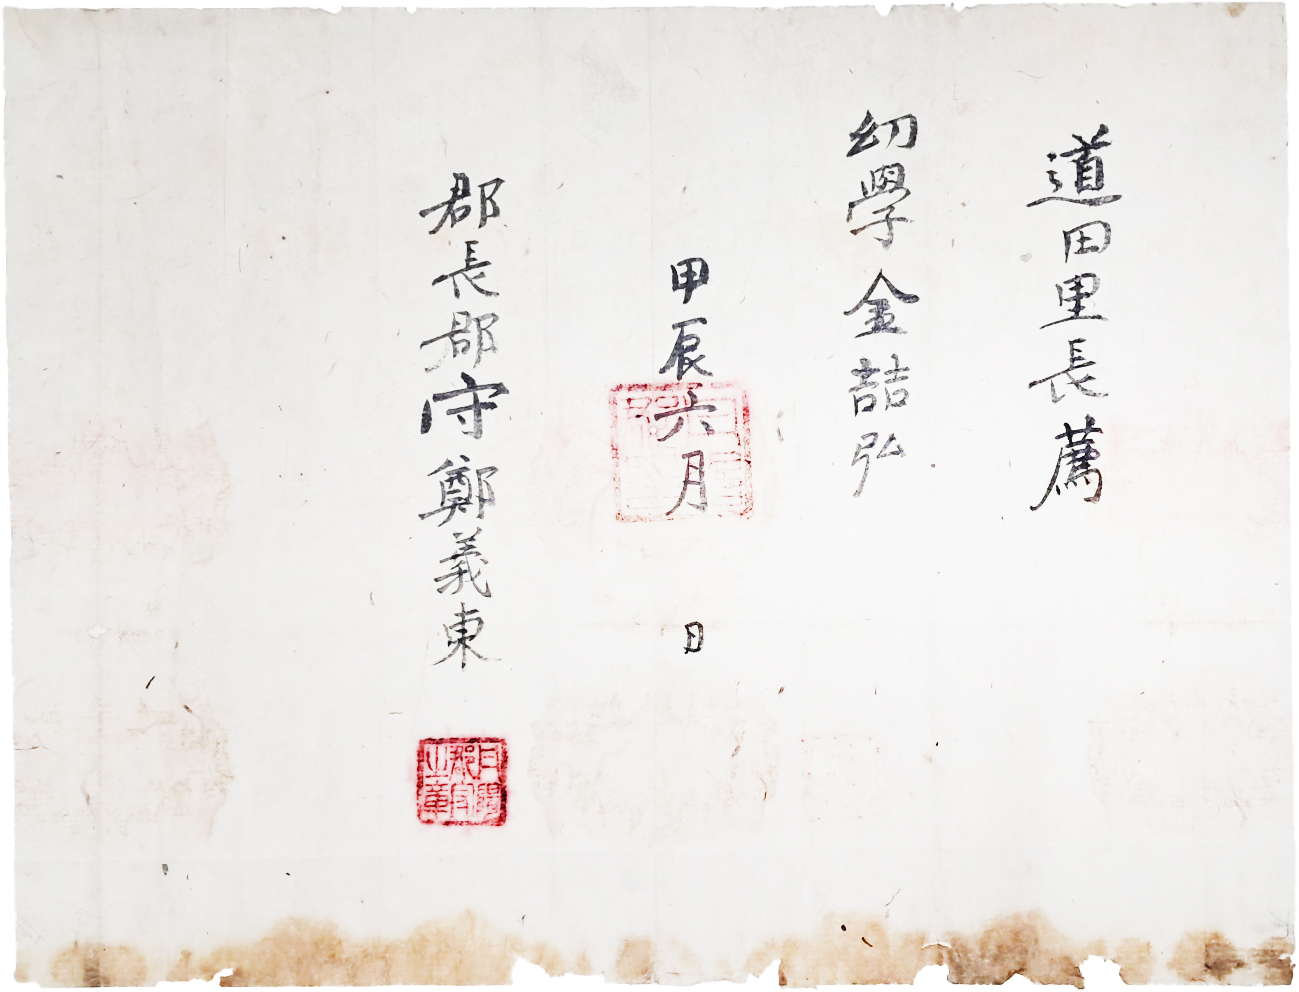 道田里長薦
幼學金喆弘
甲辰六月 日
郡長郡守鄭義東